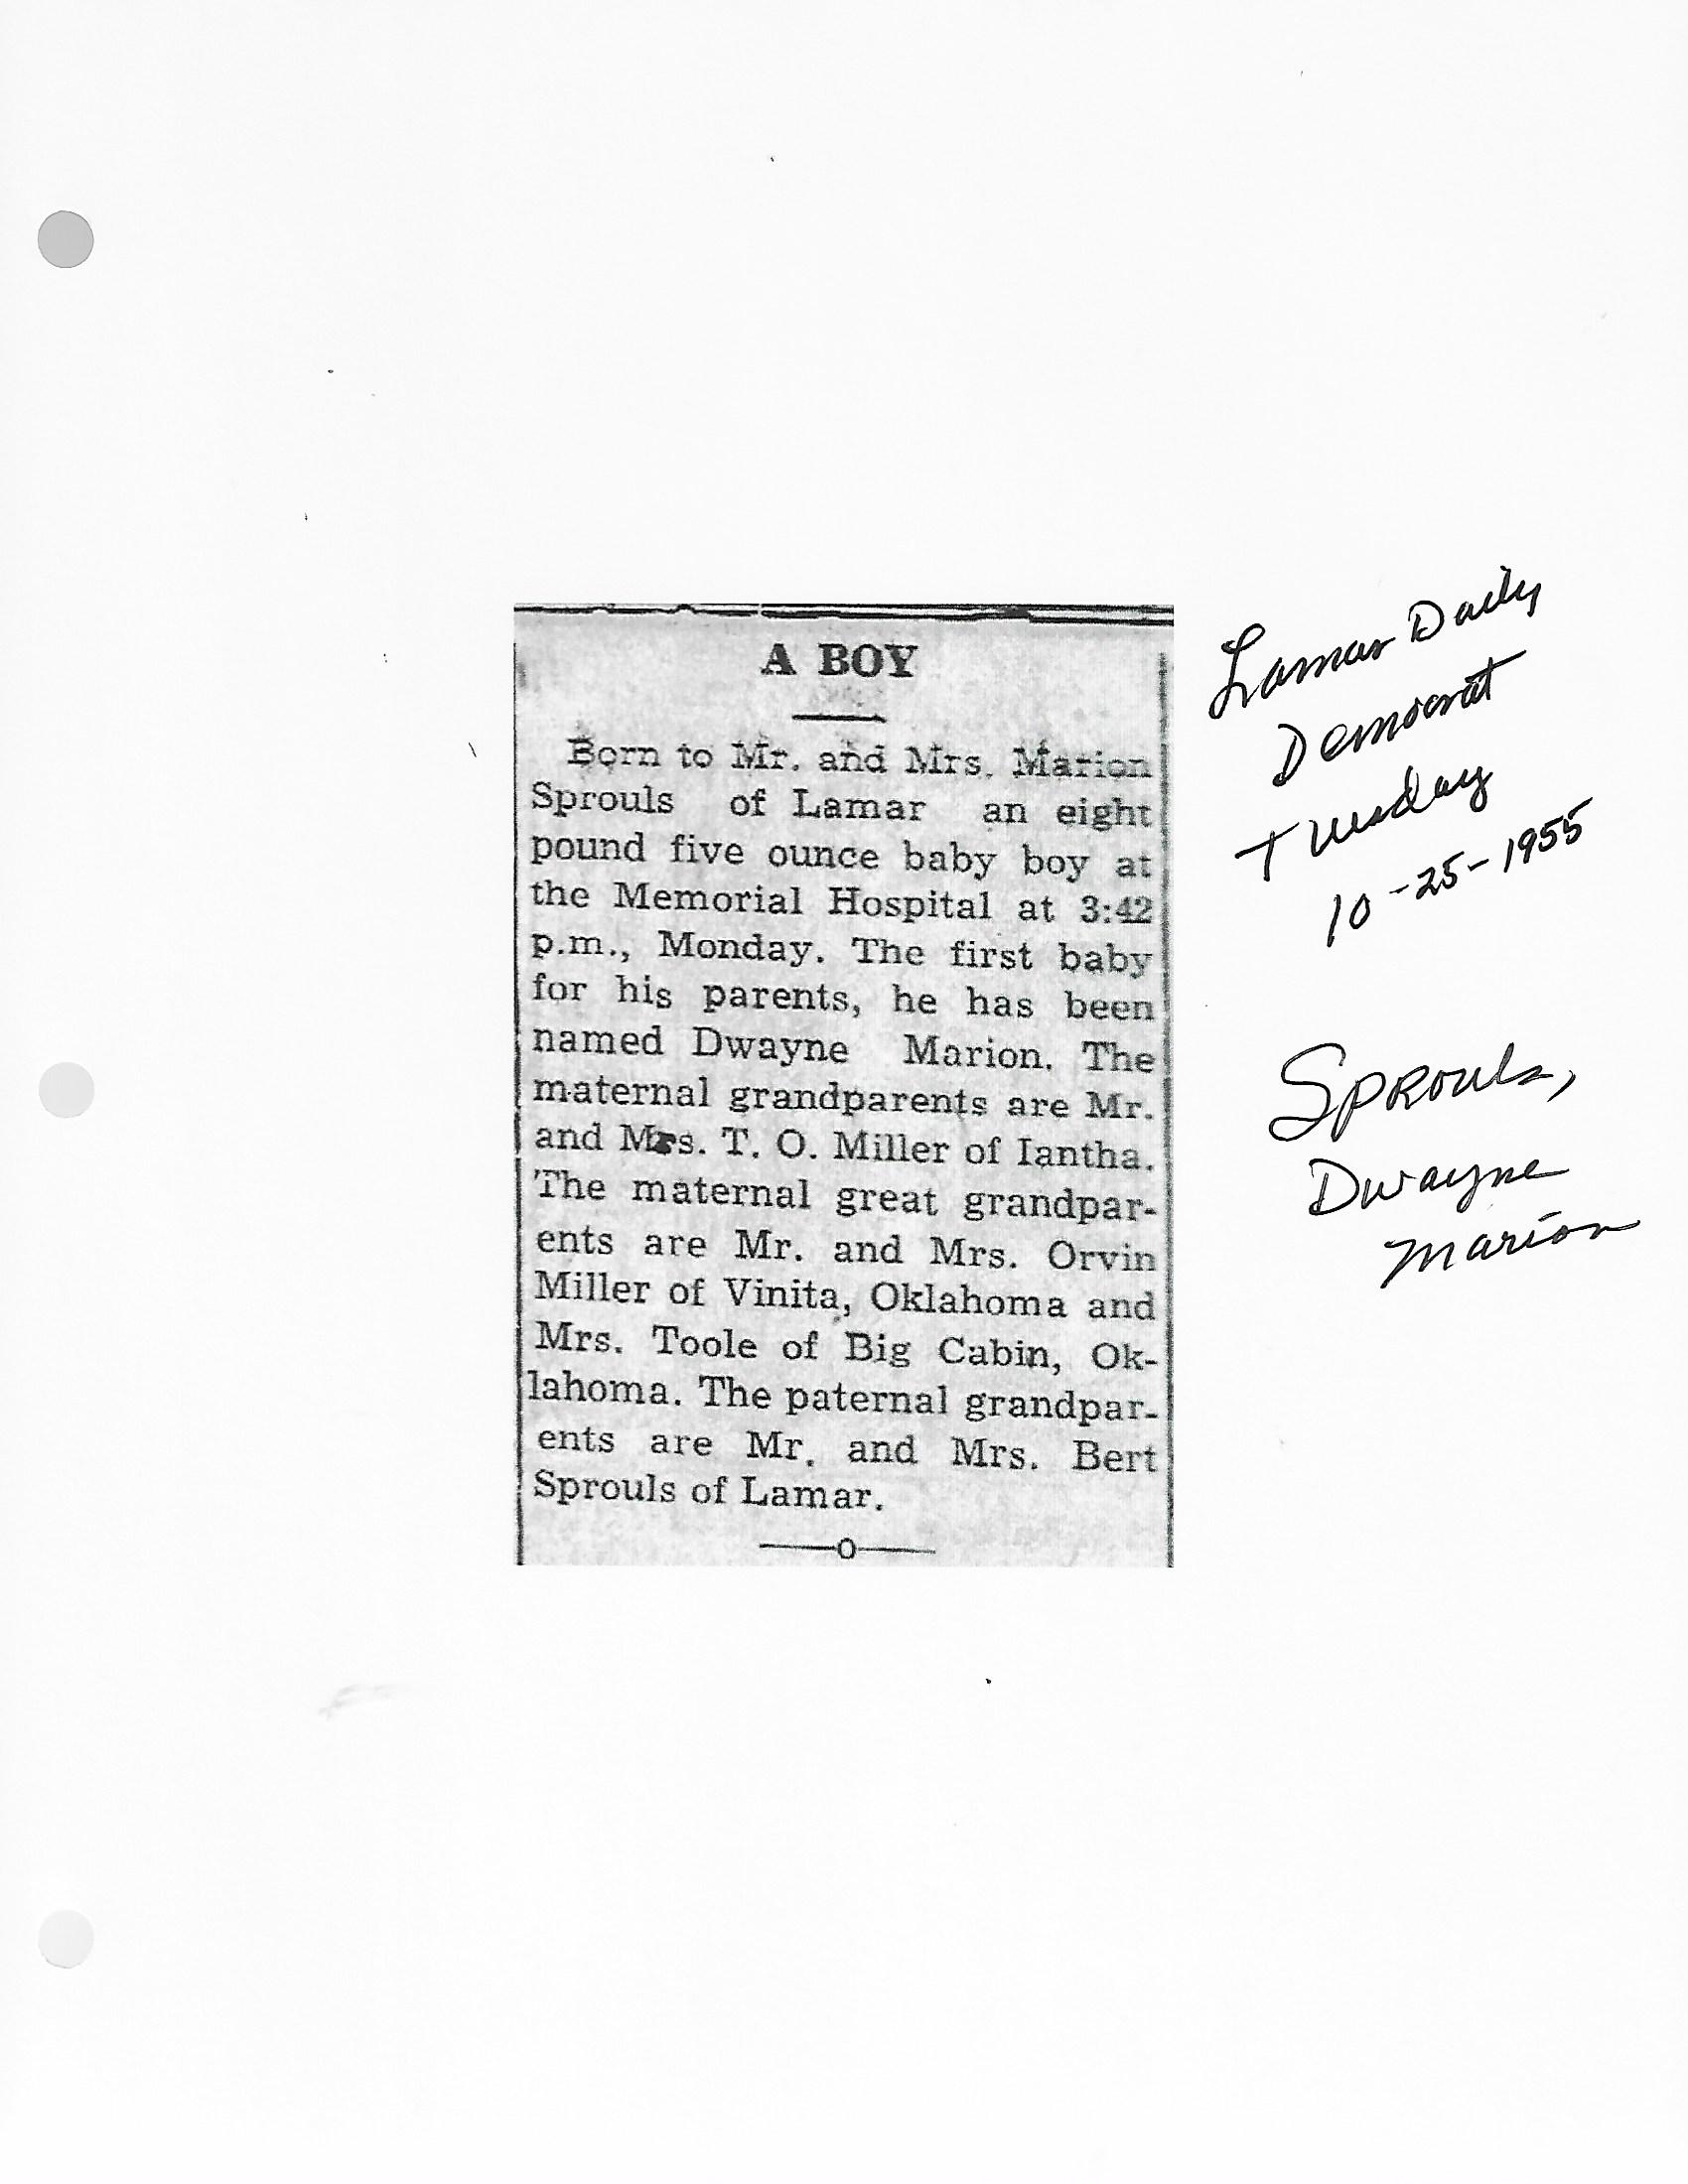 A BOY
Born to Mr. and Mrs. Marion
Sprouls of Lamar an eight
pound five ounce baby boy at
the Memorial Hospital at 3:42
p.m., Monday. The first baby
for his parents, he has been
named Dwayne Marion. The
maternal grandparents are Mr.
and Mrs. T. O. Miller of Iantha.
The maternal great grandpar-
ents are Mr. and Mrs. Orvin
Miller of Vinita, Oklahoma and
Mrs. Toole of Big Cabin, Ok-
lahoma. The paternal grandpar-
ents are Mr. and Mrs. Bert
Sprouls of Lamar.
Lamar Daily
Democrat
Tuesday
10-25-1955
Sprouls,
Dwayne
Marion